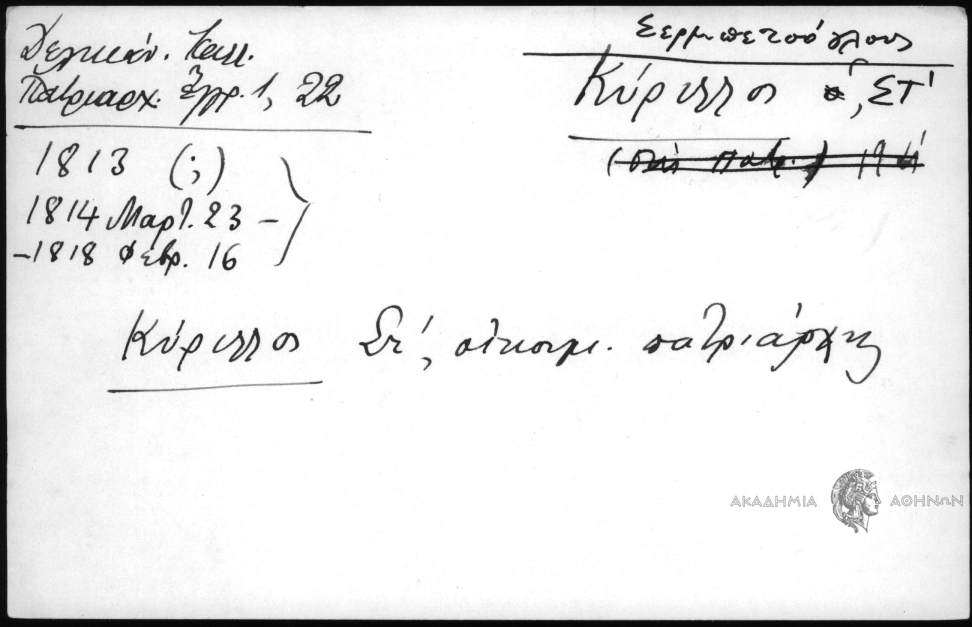 Δελικάν. Καλλ.
Πατριαρχ. Ἔγγρ. 1, 22
1813 (;)
1814 Μαρτ. 23 –
– 1818 Φεβρ. 16
Σερμπετσόγλους
Κύριλλος ὁ, ΣΤ'
Κύριλλος ΣΤ', οἰκουμ. πατριάρχης
ΑΚΑΔΗΜΙΑ ΑΘΗΝΩΝ